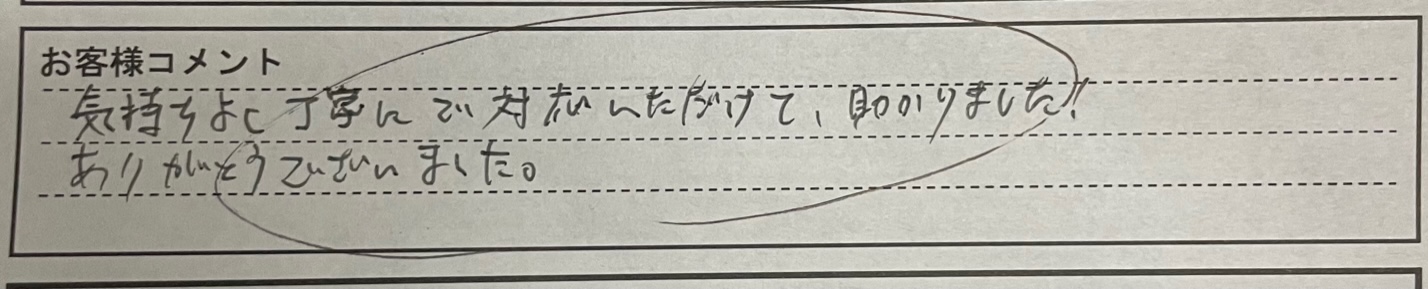 お客様コメント
気持ちよく丁寧にご対応いただけて、助かりました!!
ありがとうございました。